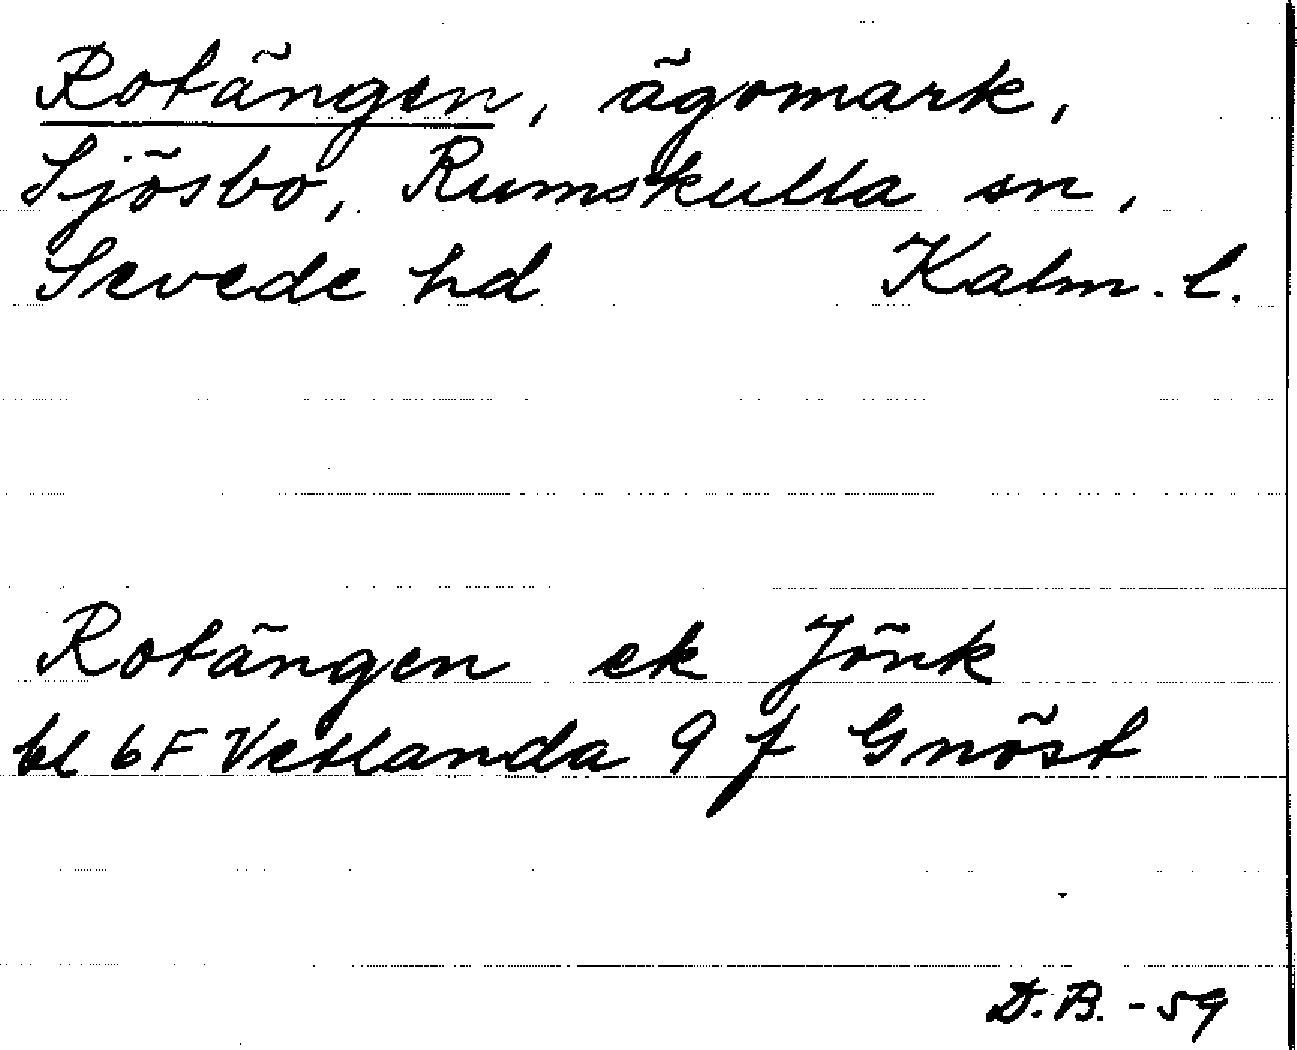 Rotängen, ägomark,
Sjösbo, Rumskulla sn,
Sevede hd Kalm. l.
Rotängen ek Jönk
bl 6F Vetlanda 9 f Gnöst
D.B. -59